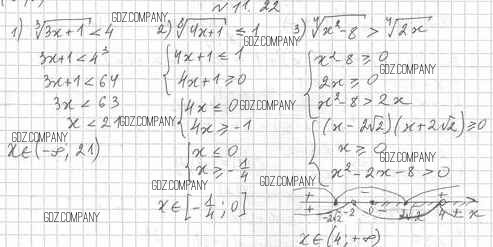 № 11. 22
1) ∛(3x+1) < 4
3x+1 < 4³
3x+1 < 64
3x < 63
x < 21
x ∈ (-∞; 21)
2) ⁶√(4x+1) ≤ 1
{ 4x+1 ≤ 1
4x+1 ≥ 0
{ 4x ≤ 0
4x ≥ -1
{ x ≤ 0
x ≥ -1/4
x ∈ [-1/4; 0]
3) ⁴√(x²-8) > ⁴√(2x)
{ x²-8 ≥ 0
2x ≥ 0
x²-8 > 2x
{ (x-2√2)(x+2√2) ≥ 0
x ≥ 0
x²-2x-8 > 0
+ - +
+ -2√2 -2 0 - 2√2 4 + x
x ∈ (4; +∞)
GDZ.COMPANY
GDZ.COMPANY
GDZ.COMPANY
GDZ.COMPANY
GDZ.COMPANY
GDZ.COMPANY
GDZ.COMPANY
GDZ.COMPANY
GDZ.COMPANY
GDZ.COMPANY
GDZ.COMPANY
GDZ.COMPANY